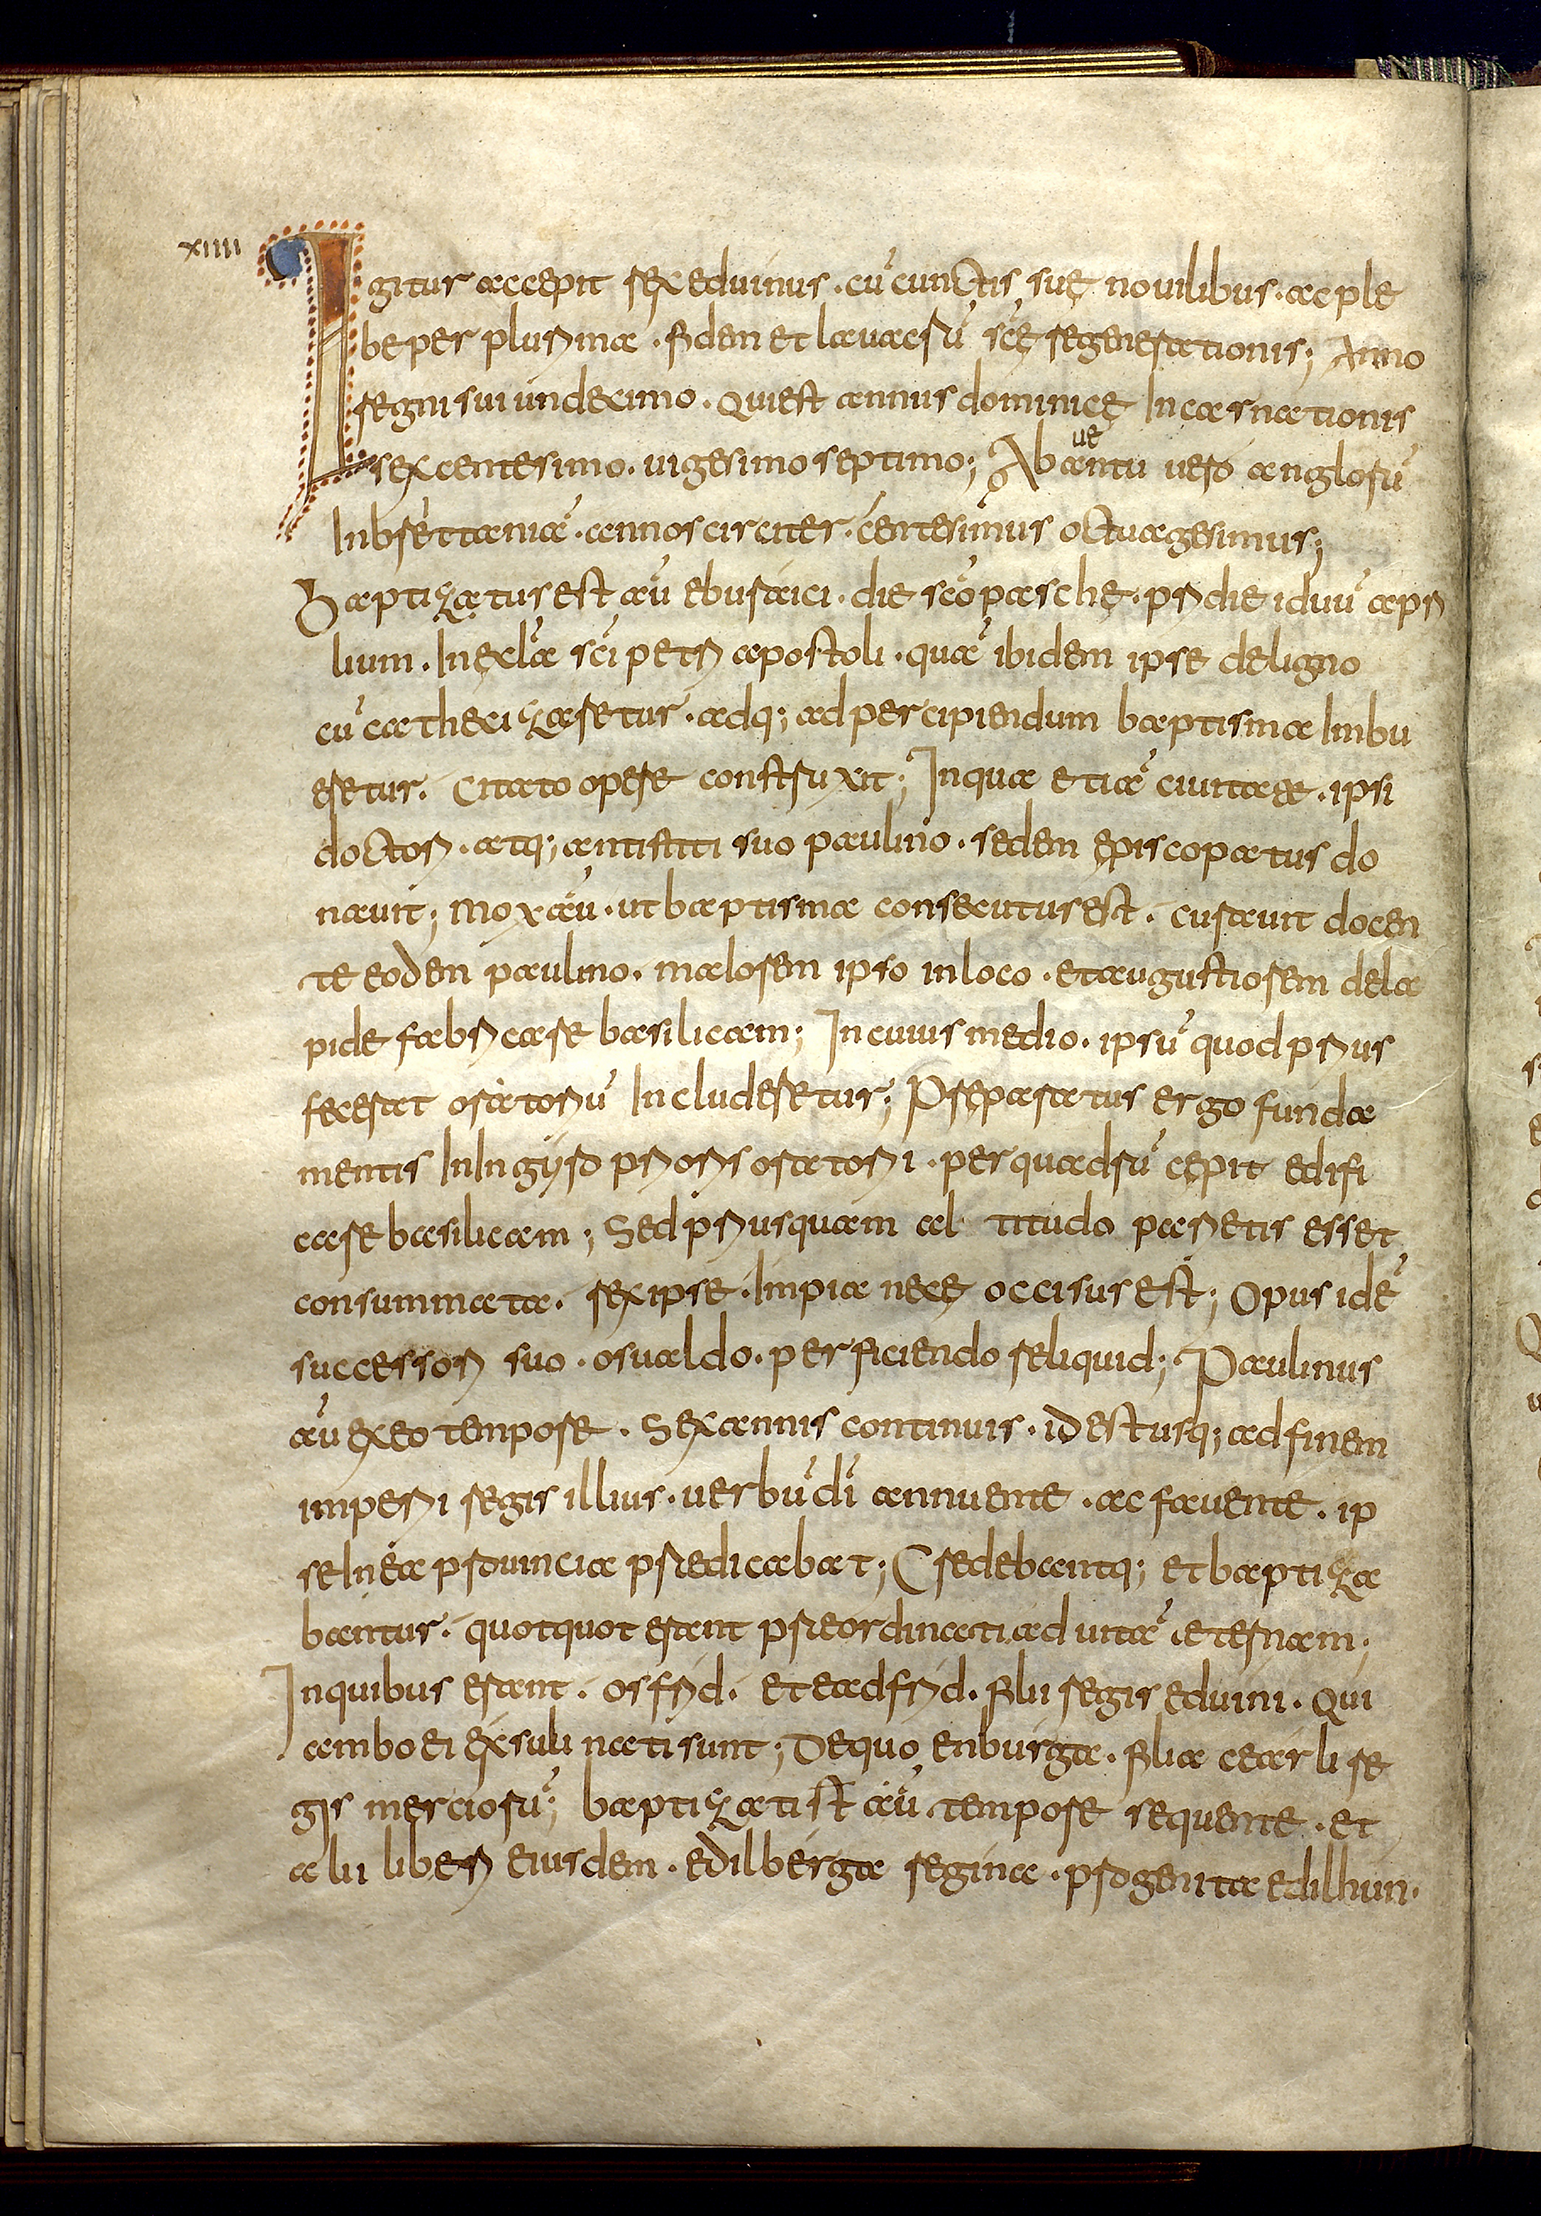 xiiii
Igitur accepit rex eduinus · cū cunctis suę nouilibus · ac ple
be per plurima · fidem et lauacrū scę regenerationis; Anno
regni sui undecimo · qui est annus dominicę incarnationis
sexcentesimo · uigesimo septimo; Ab aduentu uero anglorū
In brettaniā · annos circiter · centesimus octuagesimus;
Baptizatus est aū eburaici · die scō paschę · pridie iduū apri
lium · In ecla sci petri apostoli · quā ibidem ipse de ligno
cū cathecizaretur · adq; ad percipiendum baptisma Inbu
eretur · citato opere construxit; In qua etiā ciuitate · ipsi
doctori · atq; antistiti suo paulino · sedem episcopatus do
nauit; mox aū · ut baptisma consecutus est · curauit docen
te eodem paulino · maiorem ipso in loco · et augustiorem de la
pide fabricare basilicam; In cuius medio · ipsū quod prius
fecerat oratoriū Includeretur; Preparatus ergo funda
mentis In In gyro prioris oratorii · per quadrū cępit edifi
care basilicam; Sed priusquam al titudo parietis esset
consummata · rex ipse · Impia necę occisus est; Opus idē
successori suo · osualdo · perficiendo reliquid; Paulinus
aū ex eo tempore · sex annis continuis · id est usq; ad finem
imperii regis illius · uerbū dī annuente · ac fauente · ip
se In ea prouincia predicabat; Credebantq; et baptiza
bantur · quotquot erant preordinati ad uitā eternam ·
In quibus erant · osfrid · et eadfrid · filii regis eduini · qui
ambo ei exsuli nati sunt; De quoenburga · filia cearli re
gis merciorū; baptizati st aū tempore sequente · et
alii liberi eiusdem · edilberga regina · progenita edilhun ·